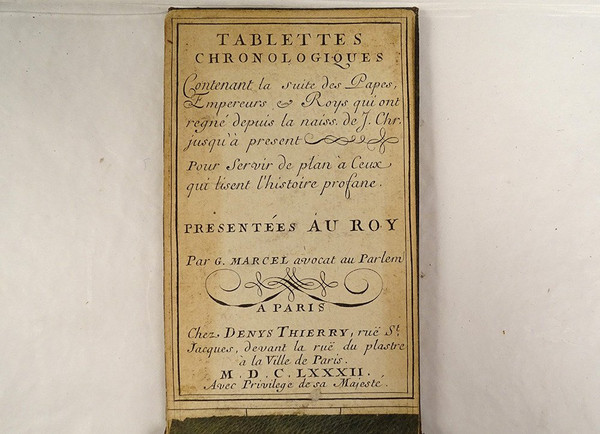 TABLETTES
CHRONOLOGIQUES
Contenant la suite des Papes,
Empereurs & Roys qui ont
regné depuis la naiss. de J. Chr.
jusqu'à present
Pour servir de plan à Ceux
qui lisent l'histoire profane.
PRESENTÉES AU ROY
Par G. MARCEL avocat au Parlem
A PARIS
Chez DENYS THIERRY, ruë St.
Jacques, devant la ruë du plastre
à la Ville de Paris.
M. D. C. LXXXII.
Avec Privilege de sa Majesté.